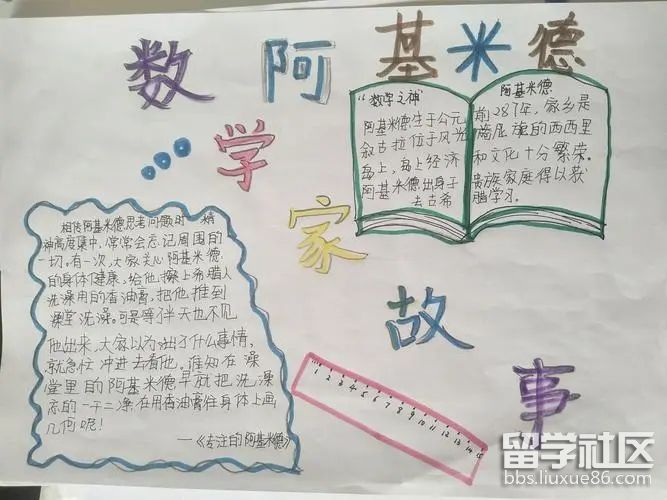 数学家故事
阿基米德
"数学之神"
阿基米德生于公元
叙古拉位于风光
岛上，岛上经济
阿基米德出身于
去古希
阿基米德
前287年，家乡是
旖旎的西西里
和文化十分繁荣。
贵族家庭得以
腊学习。
相传阿基米德思考问题时，精
神高度集中，常常会忘记周围的
一切，有一次，大家关心阿基米德
的身体健康，给他擦上希腊人
洗澡用的香油膏，把他推到
澡堂洗澡。可是等了半天也不见
他出来，大家以为出了什么事情，
就急忙冲进去看他。谁知在澡
堂里的阿基米德早就把洗澡
忘的一干二净，在用香油膏往身体上画
几何呢！
—《专注的阿基米德》
1 2 3 4 5 6 7 8 9 10 11 12 13 14 15
留学社区
bbs.liuxue86.com